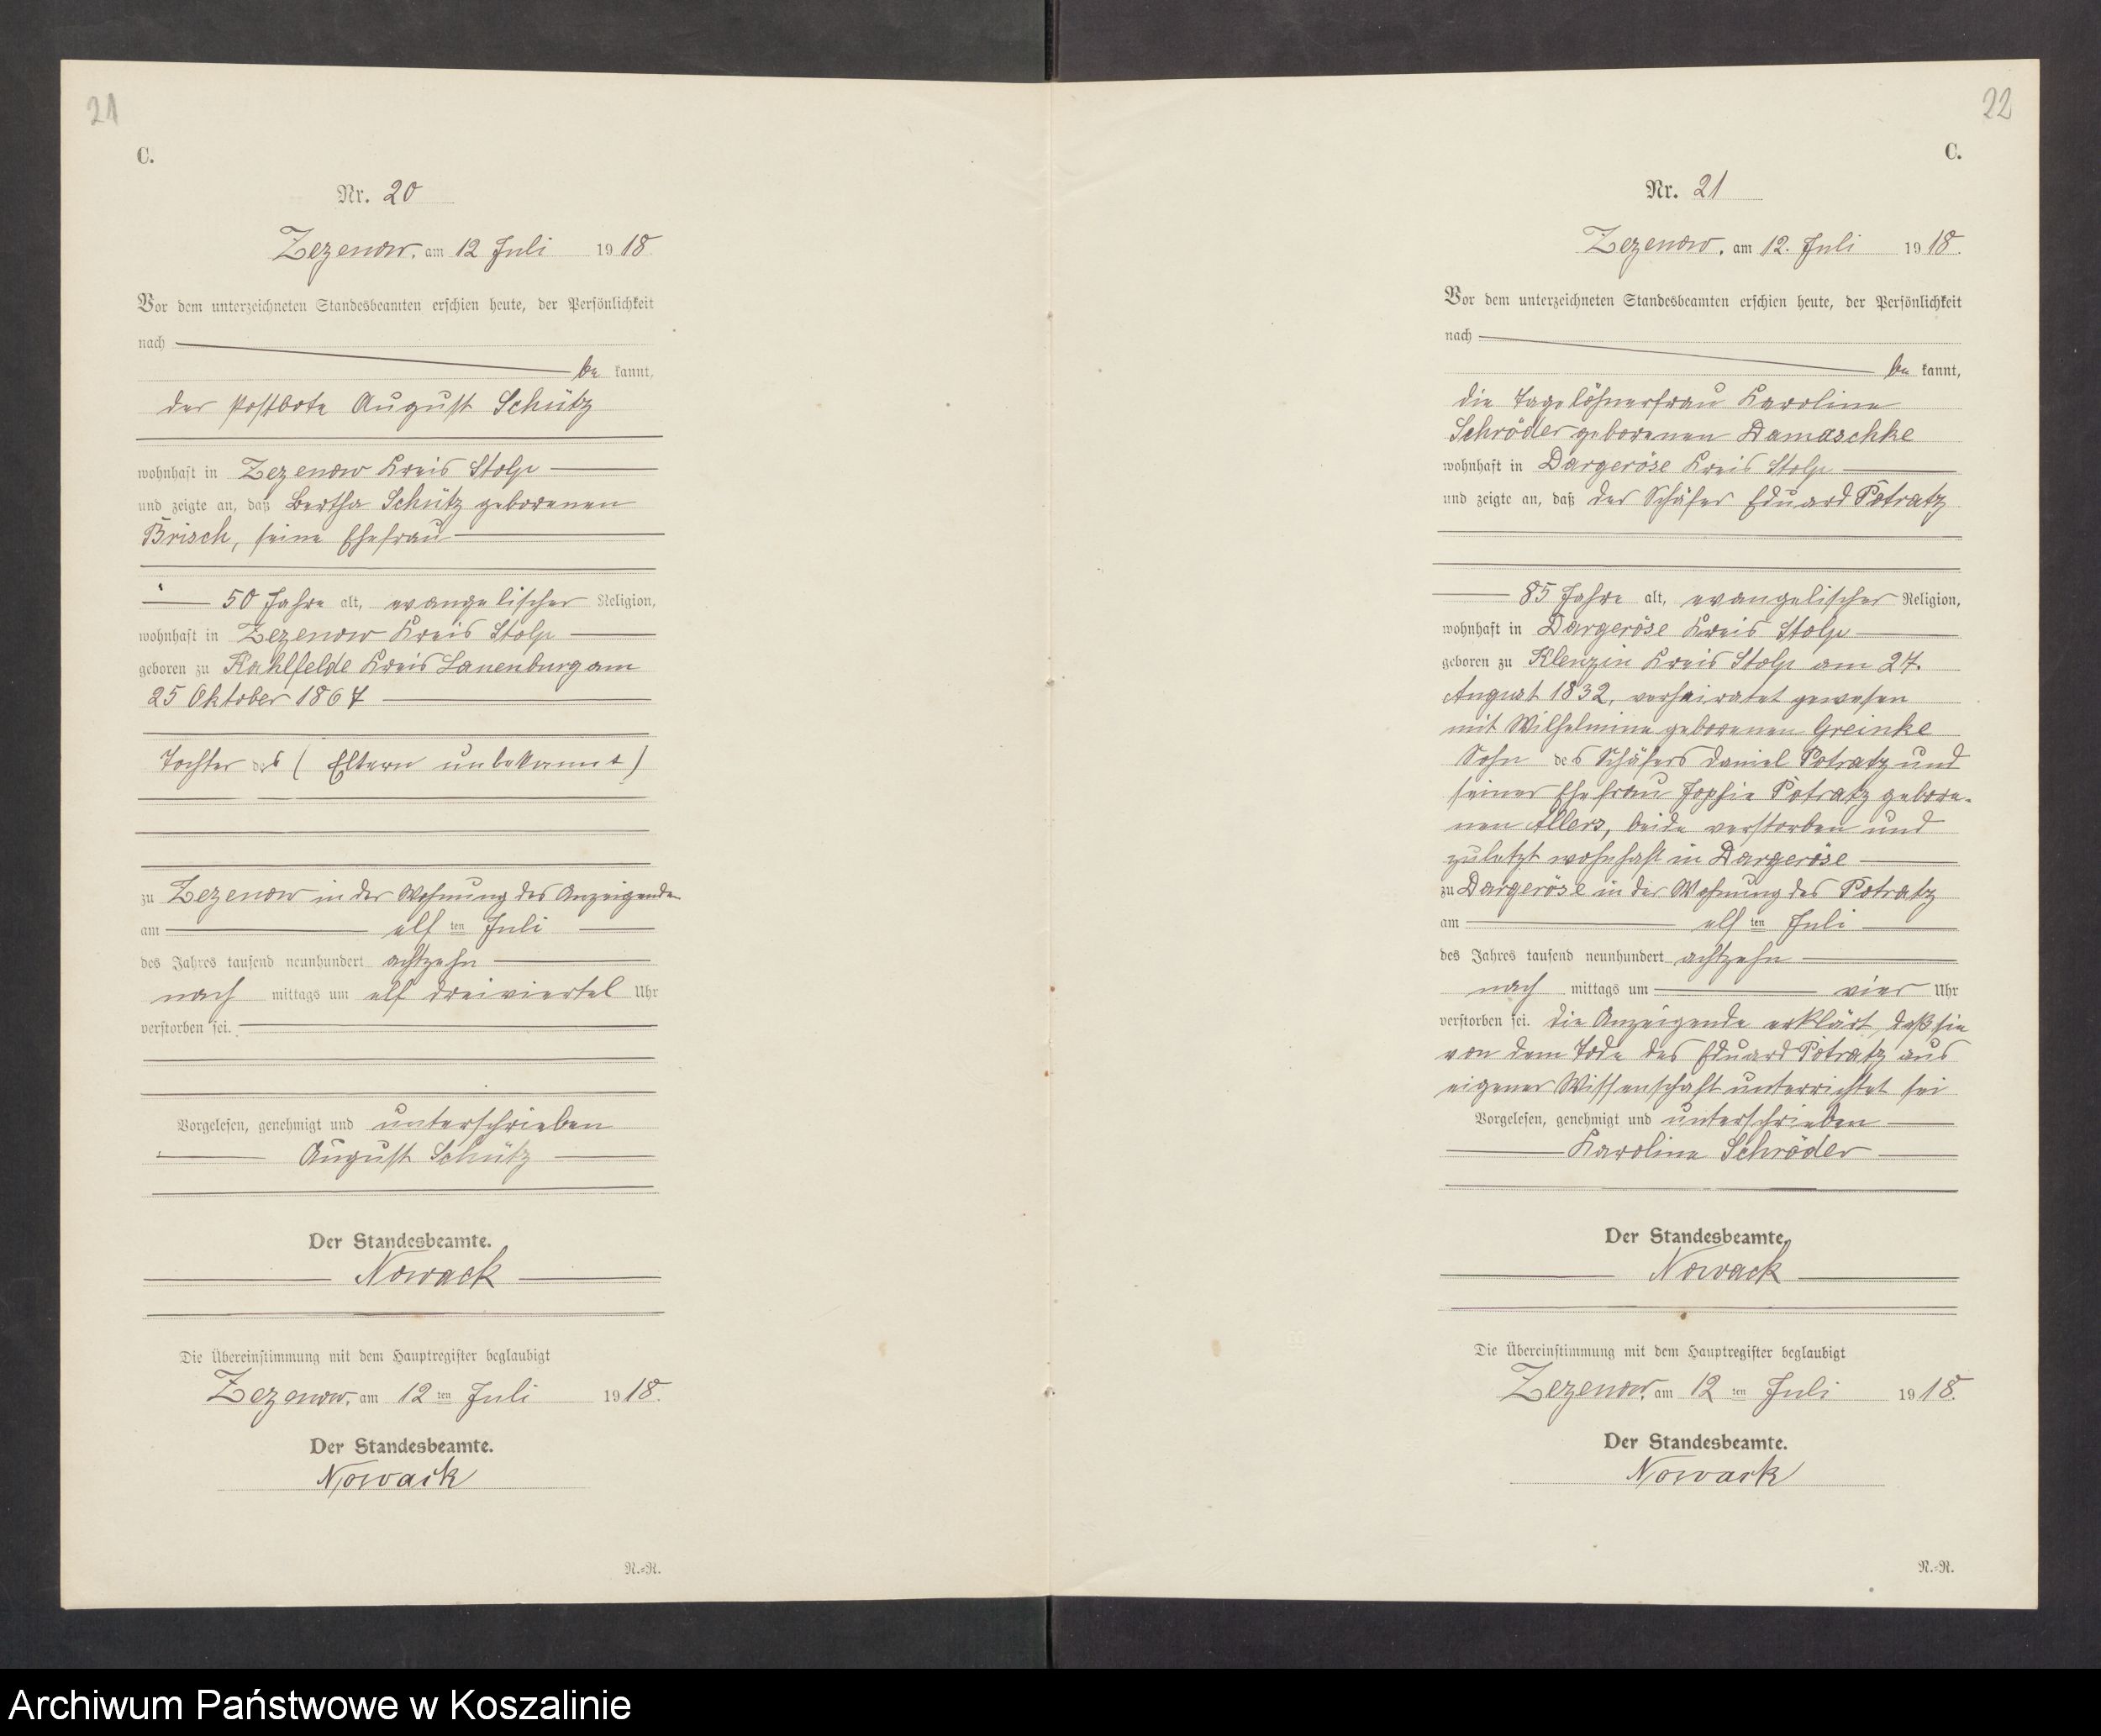 21
C.
Nr. 20
Zezenow, am 12 Juli 1918.
Vor dem unterzeichneten Standesbeamten erschien heute, der Persönlichkeit
nach
be kannt,
der Postbote August Schütz
wohnhaft in Zezenow Kreis Stolp
und zeigte an, daß Bertha Schütz geborenen
Brisch, seine Ehefrau
50 Jahre alt, evangelischer Religion,
wohnhaft in Zezenow Kreis Stolp
geboren zu Kahlfelde Kreis Lauenburg am
25 Oktober 1867
Tochter des (Eltern unbekannt)
zu Zezenow in der Wohnung des Anzeigenden
am elf ten Juli
des Jahres tausend neunhundert achtzehn
nach mittags um elf dreiviertel Uhr
verstorben sei.
Vorgelesen, genehmigt und unterschrieben
August Schütz
Der Standesbeamte.
Nowack
Die Übereinstimmung mit dem Hauptregister beglaubigt
Zezenow, am 12 ten Juli 1918.
Der Standesbeamte.
Nowack
R.=R.
22
C.
Nr. 21
Zezenow, am 12. Juli 1918.
Vor dem unterzeichneten Standesbeamten erschien heute, der Persönlichkeit
nach
be kannt,
die Tagelöhnerfrau Karoline
Schröder geborenen Damaschke
wohnhaft in Dargeröse Kreis Stolp
und zeigte an, daß der Schäfer Eduard Potratz
85 Jahre alt, evangelischer Religion,
wohnhaft in Dargeröse Kreis Stolp
geboren zu Klenzin Kreis Stolp am 27.
August 1832, verheiratet gewesen
mit Wilhelmine geborenen Greinke
Sohn des Schäfers Daniel Potratz und
seiner Ehefrau Sophie Potratz gebore-
nen Allers, beide verstorben und
zuletzt wohnhaft in Dargeröse
zu Dargeröse in der Wohnung des Potratz
am elf ten Juli
des Jahres tausend neunhundert achtzehn
nach mittags um vier Uhr
verstorben sei. Die Anzeigende erklärt, daß sie
von dem Tode des Eduard Potratz aus
eigener Wissenschaft unterrichtet sei
Vorgelesen, genehmigt und unterschrieben
Karoline Schröder
Der Standesbeamte.
Nowack
Die Übereinstimmung mit dem Hauptregister beglaubigt
Zezenow, am 12 ten Juli 1918.
Der Standesbeamte.
Nowack
R.=R.
Archiwum Państwowe w Koszalinie